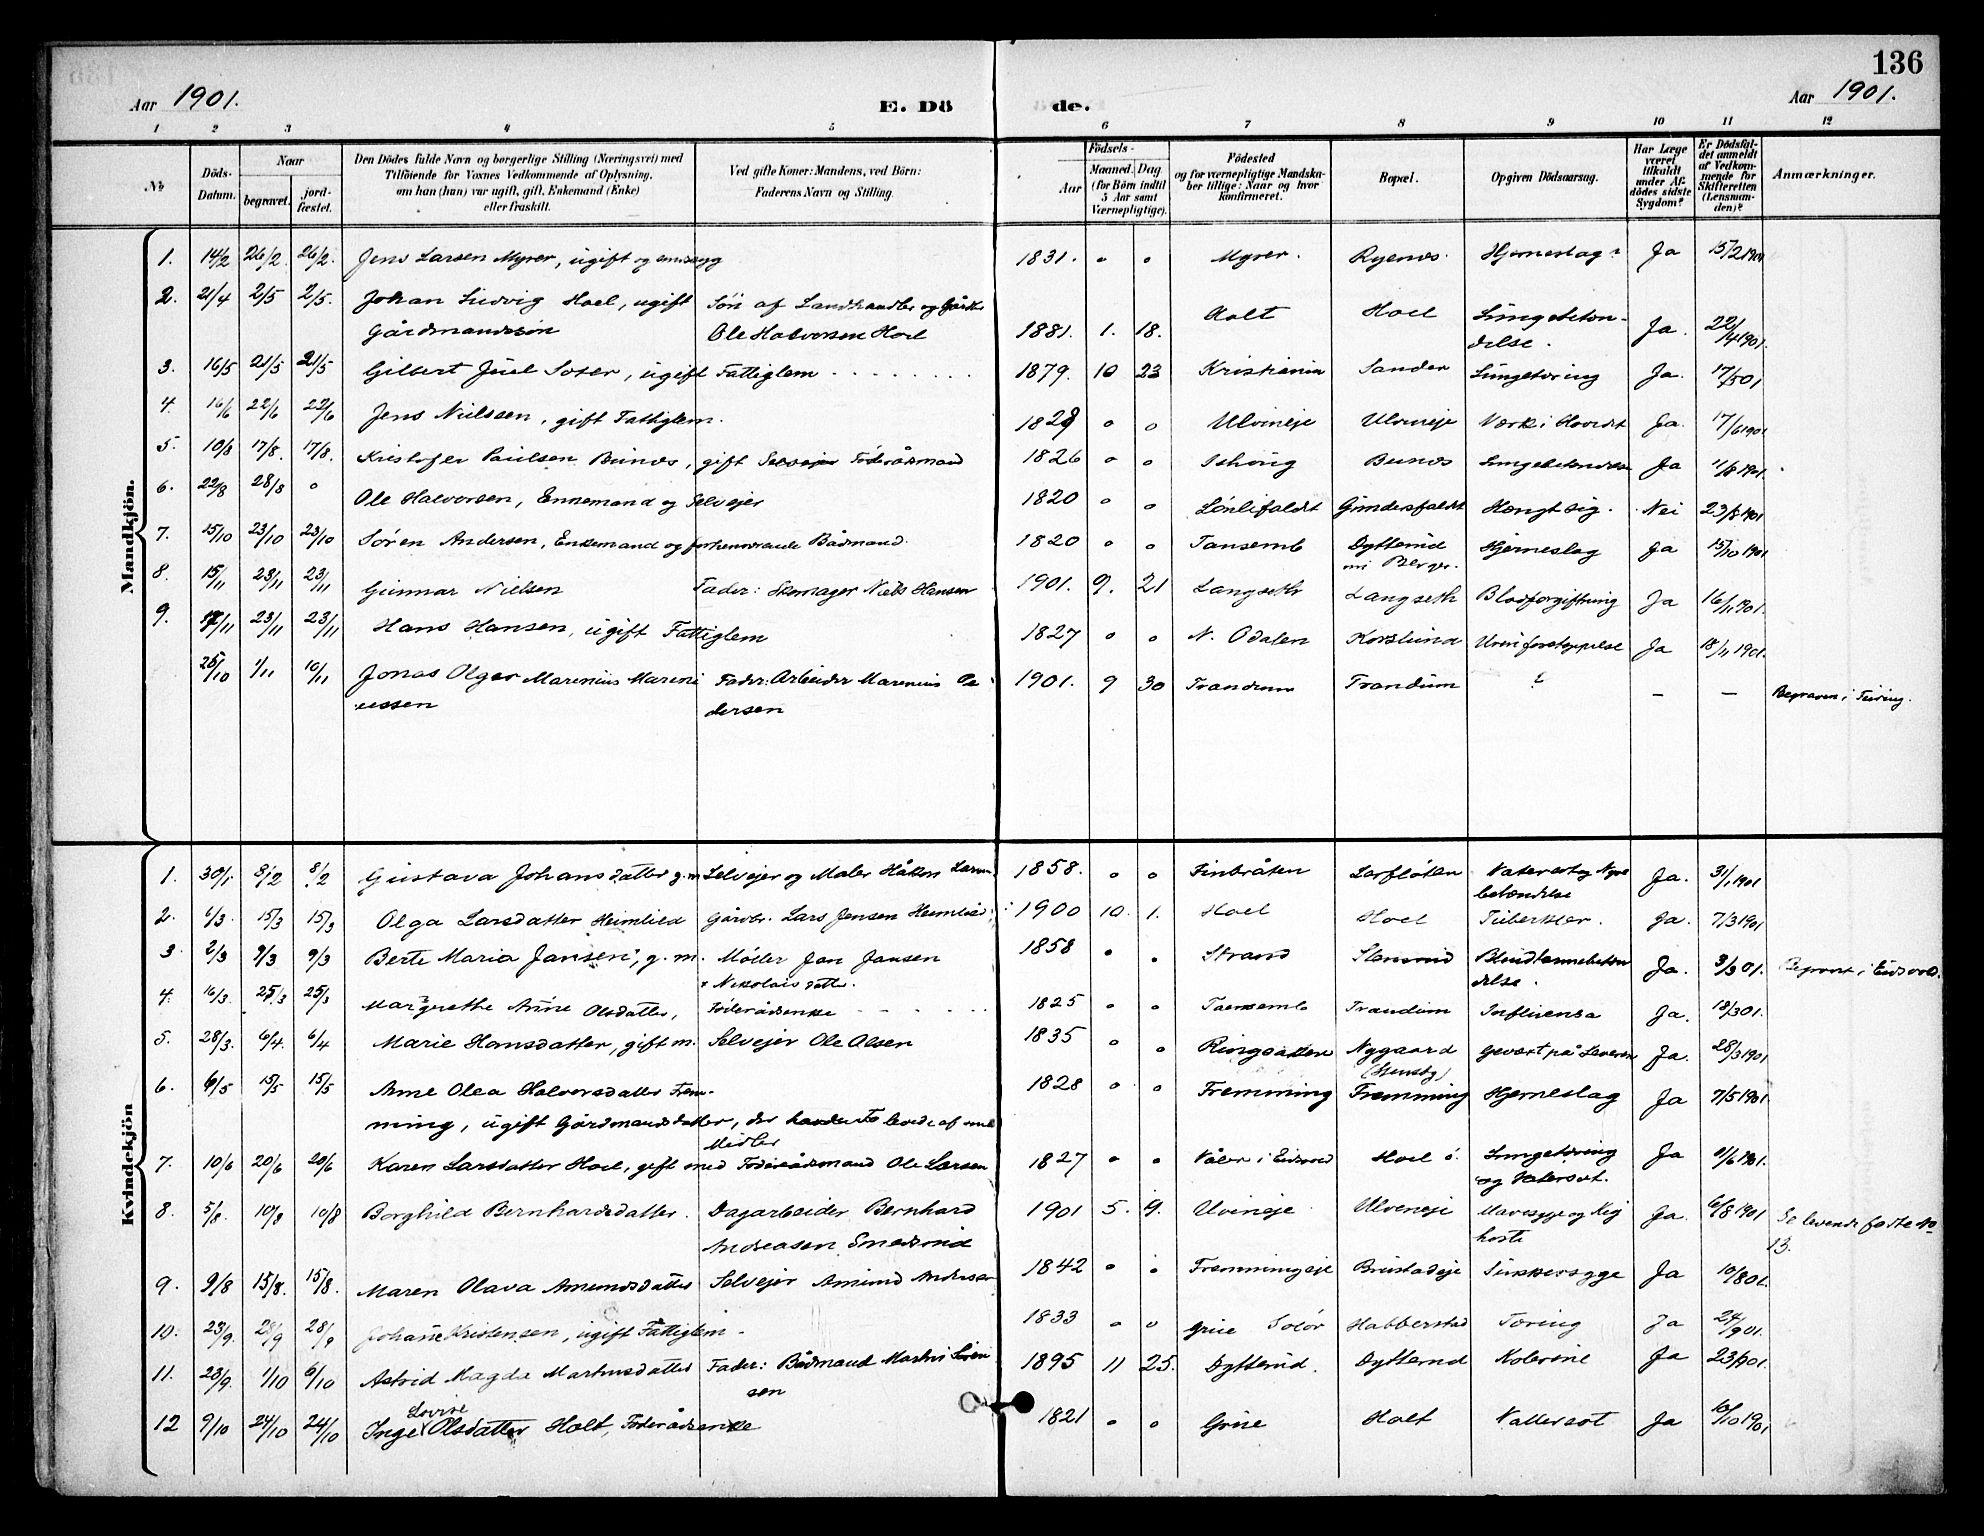 136
Aar 1901. E. Dö de. Aar 1901.
1 2 3 4 5 6 7 8 9 10 11 12
No Döds-Datum. Naar begravet. jordfæstet. Den Dödes fulde Navn og borgerlige Stilling (Næringsvei) med Tilföiende for Voxnes Vedkommende af Oplysning, om han (hun) var ugift, gift, Enkemand (Enke) eller fraskilt. Ved gifte Koner: Mandens, ved Börn: Faderens Navn og Stilling. Födsels- Aar Maaned. Dag (for Börn indtil 5 Aar samt Værnepligtige). Födested og for værnepligtige Mandskaber tillige: Naar og hvor konfirmeret. Bopæl. Opgiven Dödsaarsag. Har Læge været tilkaldt under Afdödes sidste Sygdom? Er Dödsfaldet anmeldt af Vedkommende for Skifteretten (Lensmanden)? Anmærkninger.
Mandkjön.
1. 14/2 26/2. 26/2. Jens Larsen Myrer, ugift og 1831. " " Myrer. Ryenes. Hjerneslag Ja 15/2 1901
2. 21/4 2/5 2/5. Johan Ludvig Hoel, ugift Søn af Landhandler og Gårdbr Holt Hoel Lungebeton-
Gårdmandssøn Ole Halvorsen Hoel 1881. 1. 18. delse. Ja. 22/4 1901.
3. 16/5 21/5 21/5 Gilbert Juel Soter, ugift Fattiglem 1879. 10 23 Kristiania Sander Lungetæring Ja. 17/5 01
4. 16/6 22/6 22/6 Jens Nielssen, gift Fattiglem. 1829 " " Ulvineje Ulvineje Værk i Hovedet Ja. 17/6 1901
5. 10/8 17/8. 17/8. Kristofer Paulsen Bunes, gift Selvejer Föderådsmand 1826 " " Bunes Ja 11/8 1901
6. 22/8 28/8 " Ole Halvorsen, Enkemand og Selvejer 1820 " " Lønlifaldet Gundersfaldet Hængt sig. Nei 23/8 1901
7. 15/10 23/10 23/10 Sören Andersen, Enkemand og forhenværende Bådmand. 1820 " " Tansemb Dytterud Hjerneslag Ja 15/10 1901
8. 15/11 23/11 23/11 Gunnar Nielsen Fader: Skomager Niels Hansen 1901. 9. 21 Langseth Langseth Blodforgiftning Ja 16/11 1901.
9. 17/11 23/11 23/11 Hans Hansen, ugift Fattiglem 1827 " " N. Odalen Korslund Urinforstoppelse Ja 18/11 1901.
25/10 1/11 10/11 Jonas Olger Marenius Mareni Fader: Arbeider Marenius Pe 1901. 9 30 Trandum Trandum ? – – Begraven i Feiring.
ussen dersen
Kvindekjön
1. 30/1 8/2 8/2 Gustava Johansdatter g. m Selvejer og Maler Håkon Larsen 1858. " " Finbråten Lorfløten Vatersot og Nyre Ja. 31/1 1901
betændelse
2. 6/3. 15/3 15/3 Olga Larsdatter Heimlied Gårdbr. Lars Jensen Heimlied 1900 10. 1. Hoel Hoel Tuberkler. Ja. 7/3 1901
3. 2/3 9/3 9/3 Berte Maria Jansen, g. m. Møller Jan Jansen 1858 " " Strand Blindtarmebeton Ja. 3/3 01. Begravet i Eidsvold.
Nikolaisdatter. delse.
4. 16/3. 25/3 25/3 Margrethe Anne Olsdatter, Föderådsenke 1825 " " Tansemb Trandum Influensa Ja. 18/3 01.
5. 28/3. 6/4. 6/4 Marie Hansdatter, gift m. Selvejer Ole Olsen 1835 " " Nygaard gevæxt på Leveren Ja. 28/3 1901
6. 6/5 15/5 15/5 Anne Olea Halvorsdatter Frem- 1828 " " Fremming Fremming Hjerneslag Ja 7/5 1901.
ning, ugift Gårdmandsdatter, der levede af sine
Midler
7. 10/6 20/6 20/6 Karen Larsdatter Hoel, gift med Föderådsmand Ole Larsen 1827 " " Våler i Eidsvold Hoel ö. Lungetæring Ja 11/6 1901.
og Vatersot.
8. 5/8. 10/8 10/8 Borghild Bernhardsdatter. Dagarbeider Bernhard 1901 5. 9. Ulvineje Ulvineje Mavesyge og Kig Ja. 6/8 1901 Se levende fødte No
Andreasen Smedsrud hoste 13.
9. 9/8 15/8. 15/8. Maren Olava Amundsdatter Selvejer Amund Andersen 1842 " " Fremmingeje Brustadeje Sukkersyge Ja 10/8 01.
10. 23/9. 28/9 28/9 Johane Kristensen, ugift Fattiglem. 1833 " " Grue Solör Habberstad Tæring Ja 24/9 01.
11. 23/9. 1/10 6/10 Astrid Magda Martinsdatter Fader: Bådmand Martin Sören 1895 11 25. Dytterud. Dytterud Kolerine Ja 23/9 01.
sen
12 9/10 24/10 24/10 Inge Lovise Olsdatter Holt, Föderådsenke 1821 " " Grue Holt Vattersot Ja 10/10 1901